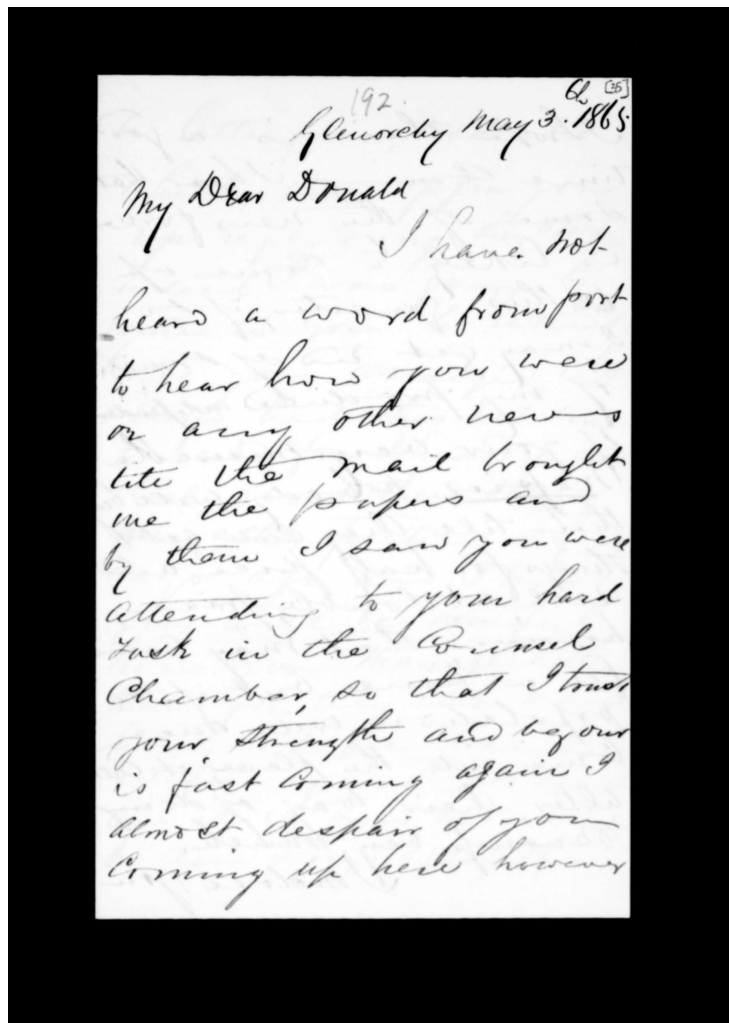 192.
[35]
Glenorchy May 3. 1865
My Dear Donald
I have not
heard a word from port
to hear how you were
or any other news
till the mail brought
me the papers and
by them I saw you were
attending to your hard
task in the Counsel
Chamber, so that I trust
your strength and vigour
is fast coming again I
almost despair of you
coming up here however